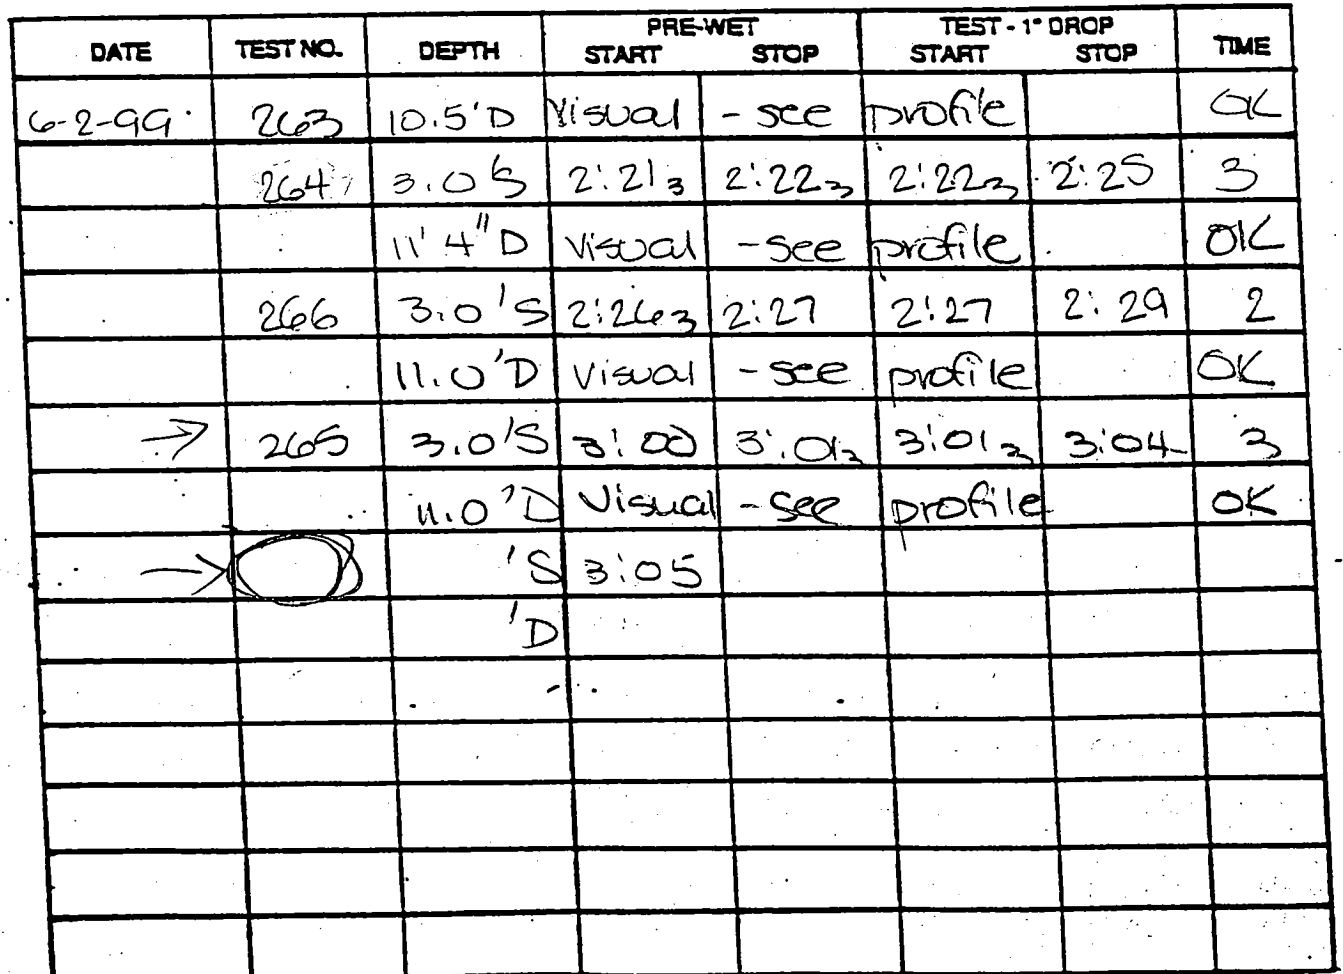 PRE-WET TEST - 1" DROP
DATE TEST NO. DEPTH START STOP START STOP TIME
6-2-99 263 10.5'D Visual - see profile OK
264 3.0'S 2:21 3 2:22 3 2:22 3 2:25 3
11'4"D Visual - see profile OK
266 3.0'S 2:26 3 2:27 2:27 2:29 2
11.0'D Visual - see profile OK
→ 265 3.0'S 3:00 3:01 3 3:01 3 3:04 3
11.0'D Visual - see profile OK
→ 'S 3:05
'D